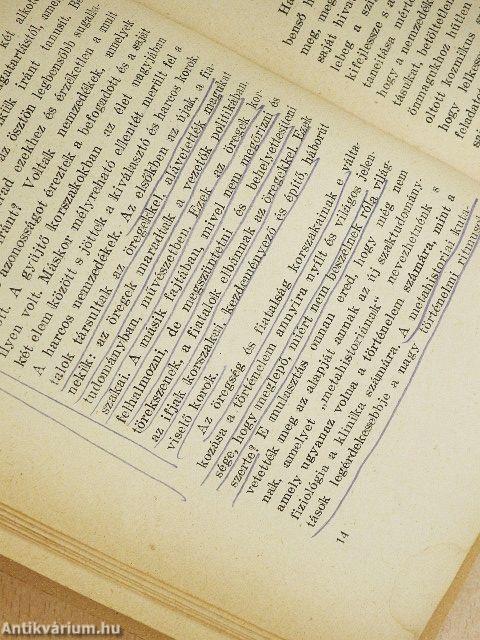 két alkotó
magatartáktól, amely
iránt tanusit.
az ösztön legbensőbb sugalla-
ezekhez és érzéketlen a mult
Voltak nemzedékek, amelyek
azonosságot érezték a befogadott és a saját
A gyüjtő korszakokban az élet nagyjában
ilyen volt. Máskor mélyreható ellentét merült fel a
két elem között s jöttek a kiválasztó és harcos korok,
A harcos nemzedékek. Az elsőkben az újak, a fia-
talok társultak az öregekkel, alávetették magukat
nekik: az öregek maradtak a vezetők politikában,
tudományban, művészetben. Ezek az öregek kor-
szakai. A másik fajtában, mivel nem megőrizni és
felhalmozni, de megszüntetni és behelyettesiteni
törekszenek, a fiatalok elbánnak az öregekkel. Ezek
az ifjak korszakai, kezdeményező és épitő, háborút
viselő korok.
Az öregség és fiatalság korszakainak e válta-
kozása a történelem annyira nyilt és világos jelen-
sége, hogy meglepő, miért nem beszélnek róla világ-
szerte? E mulasztás onnan ered, hogy még nem
vetették meg az alapját annak az új szaktudomány-
nak, amelyet „metahistoriának" nevezhetnünk s
amely ugyanaz volna a történelem számára, mint a
fiziológia a klinika számára. A metahistoriai kuta-
tások legérdekesebbje a nagy történelmi ritmusok
14
benső h
meg, meg
saját hiva
teleg a szi
kifejlessza s a
tanitása
hogy a nemzedék
önmagukhoz hűtlen
tásukat, betöltetlen
oltott kozmikus
hogy lelkes
feladato
Antikvárium.hu